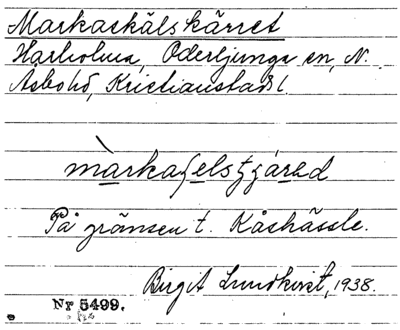 Markaskälskärret
Harholma, Oderljunga sn, N.
Åsbohd, Kristianstads l.
màrkaʃelstʃǽrəd
På gränsen t. Kåshässle.
Birgit Lundkvist, 1938.
Nr 5499.